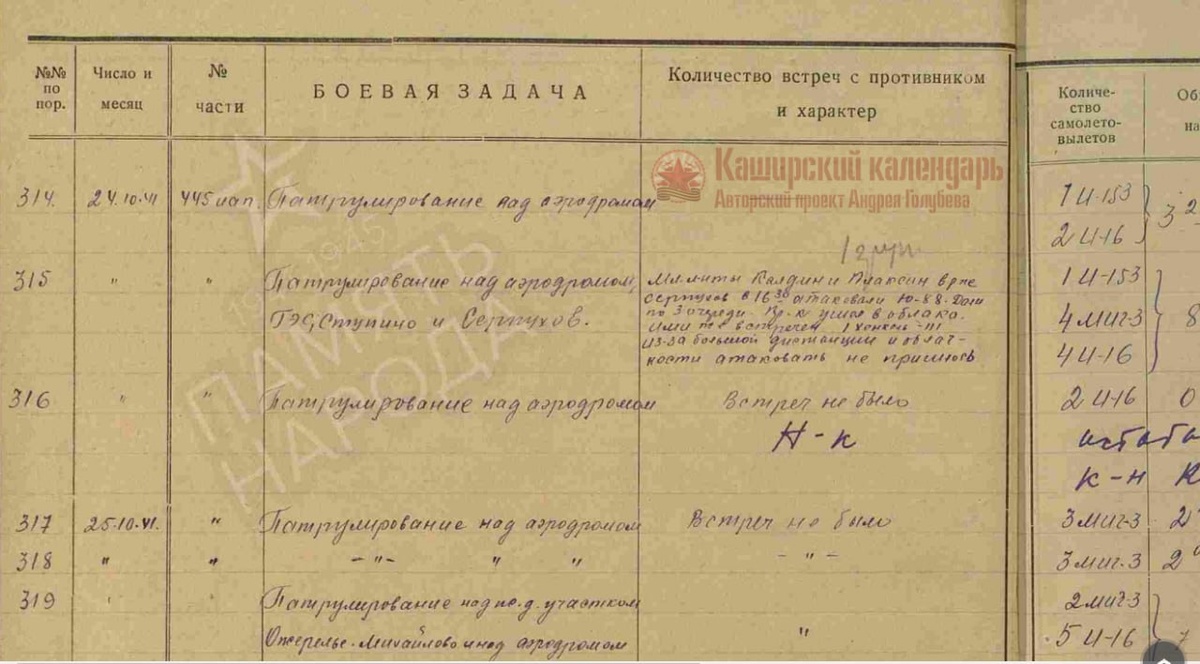 №№ по пор.
Число и месяц
№ части
БОЕВАЯ ЗАДАЧА
Количество встреч с противником и характер
Количе-
ство
самолето-
вылетов
Об
на
Каширский календарь
Авторский проект Андрея Голубева
ПАМЯТЬ
НАРОДА
1945
314. 24.10.41 445 иап. Патрулирование над аэродромом 1 И-153 3
2 И-16
315 " " Патрулирование над аэродромом, 1 И-153
ГЭС, Ступино и Серпухов. 4 миг-3 8
4 И-16
Мл.лт-ты и в р-не
Серпухов в 16 30 атаковали Ю-88. Дали
по 3 очереди. Пр-к ушел в облака.
Ими же встречен 1 Хенкель-111
из-за большой дистанции и облач-
ности атаковать не пришлось
316 " " Патрулирование над аэродромом Встреч не было 2 И-16 0
Н-к
к-н
317 25.10.41. " Патрулирование над аэродромом Встреч не было 3 миг-3 2
318 " " -"- " " -"- 3 миг-3 2
319 Патрулирование над ж.д. участком 2 миг-3
Ожерелье-Михайлово и над аэродромом " 5 И-16 7